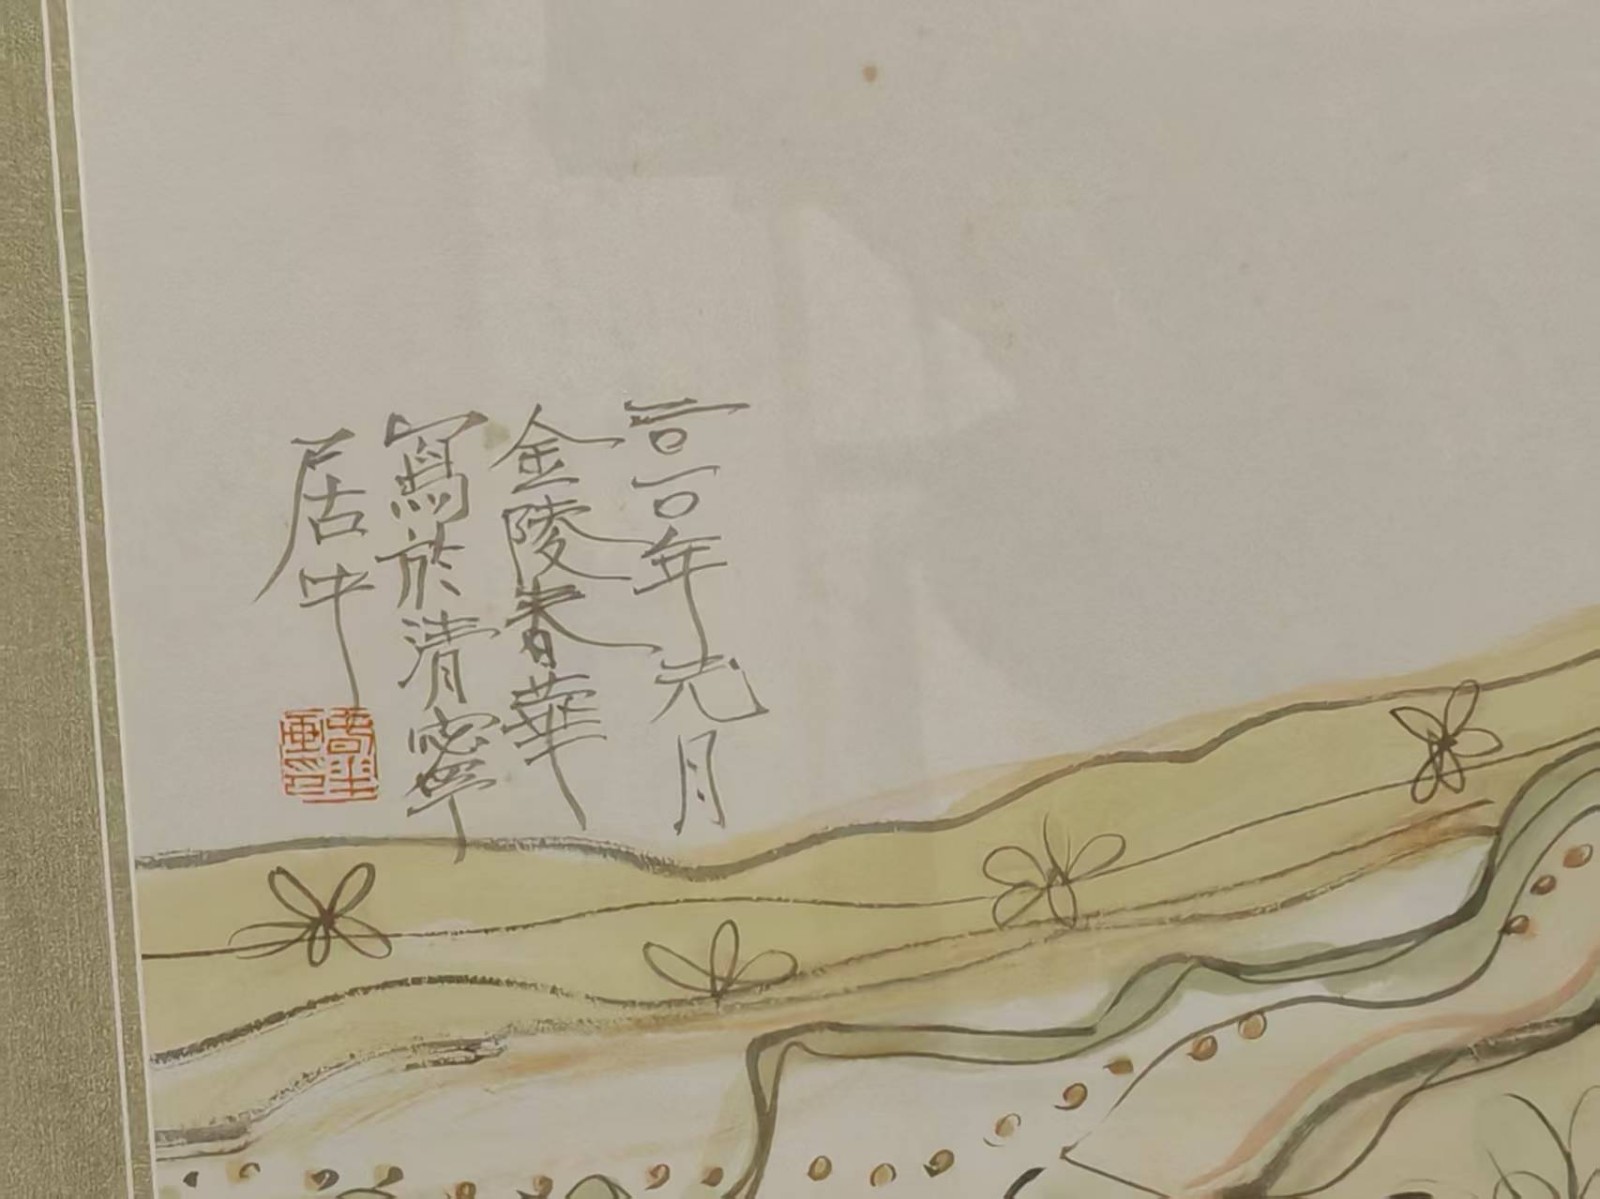 二〇一〇年元月
金陵春華
寫於清寧
居中